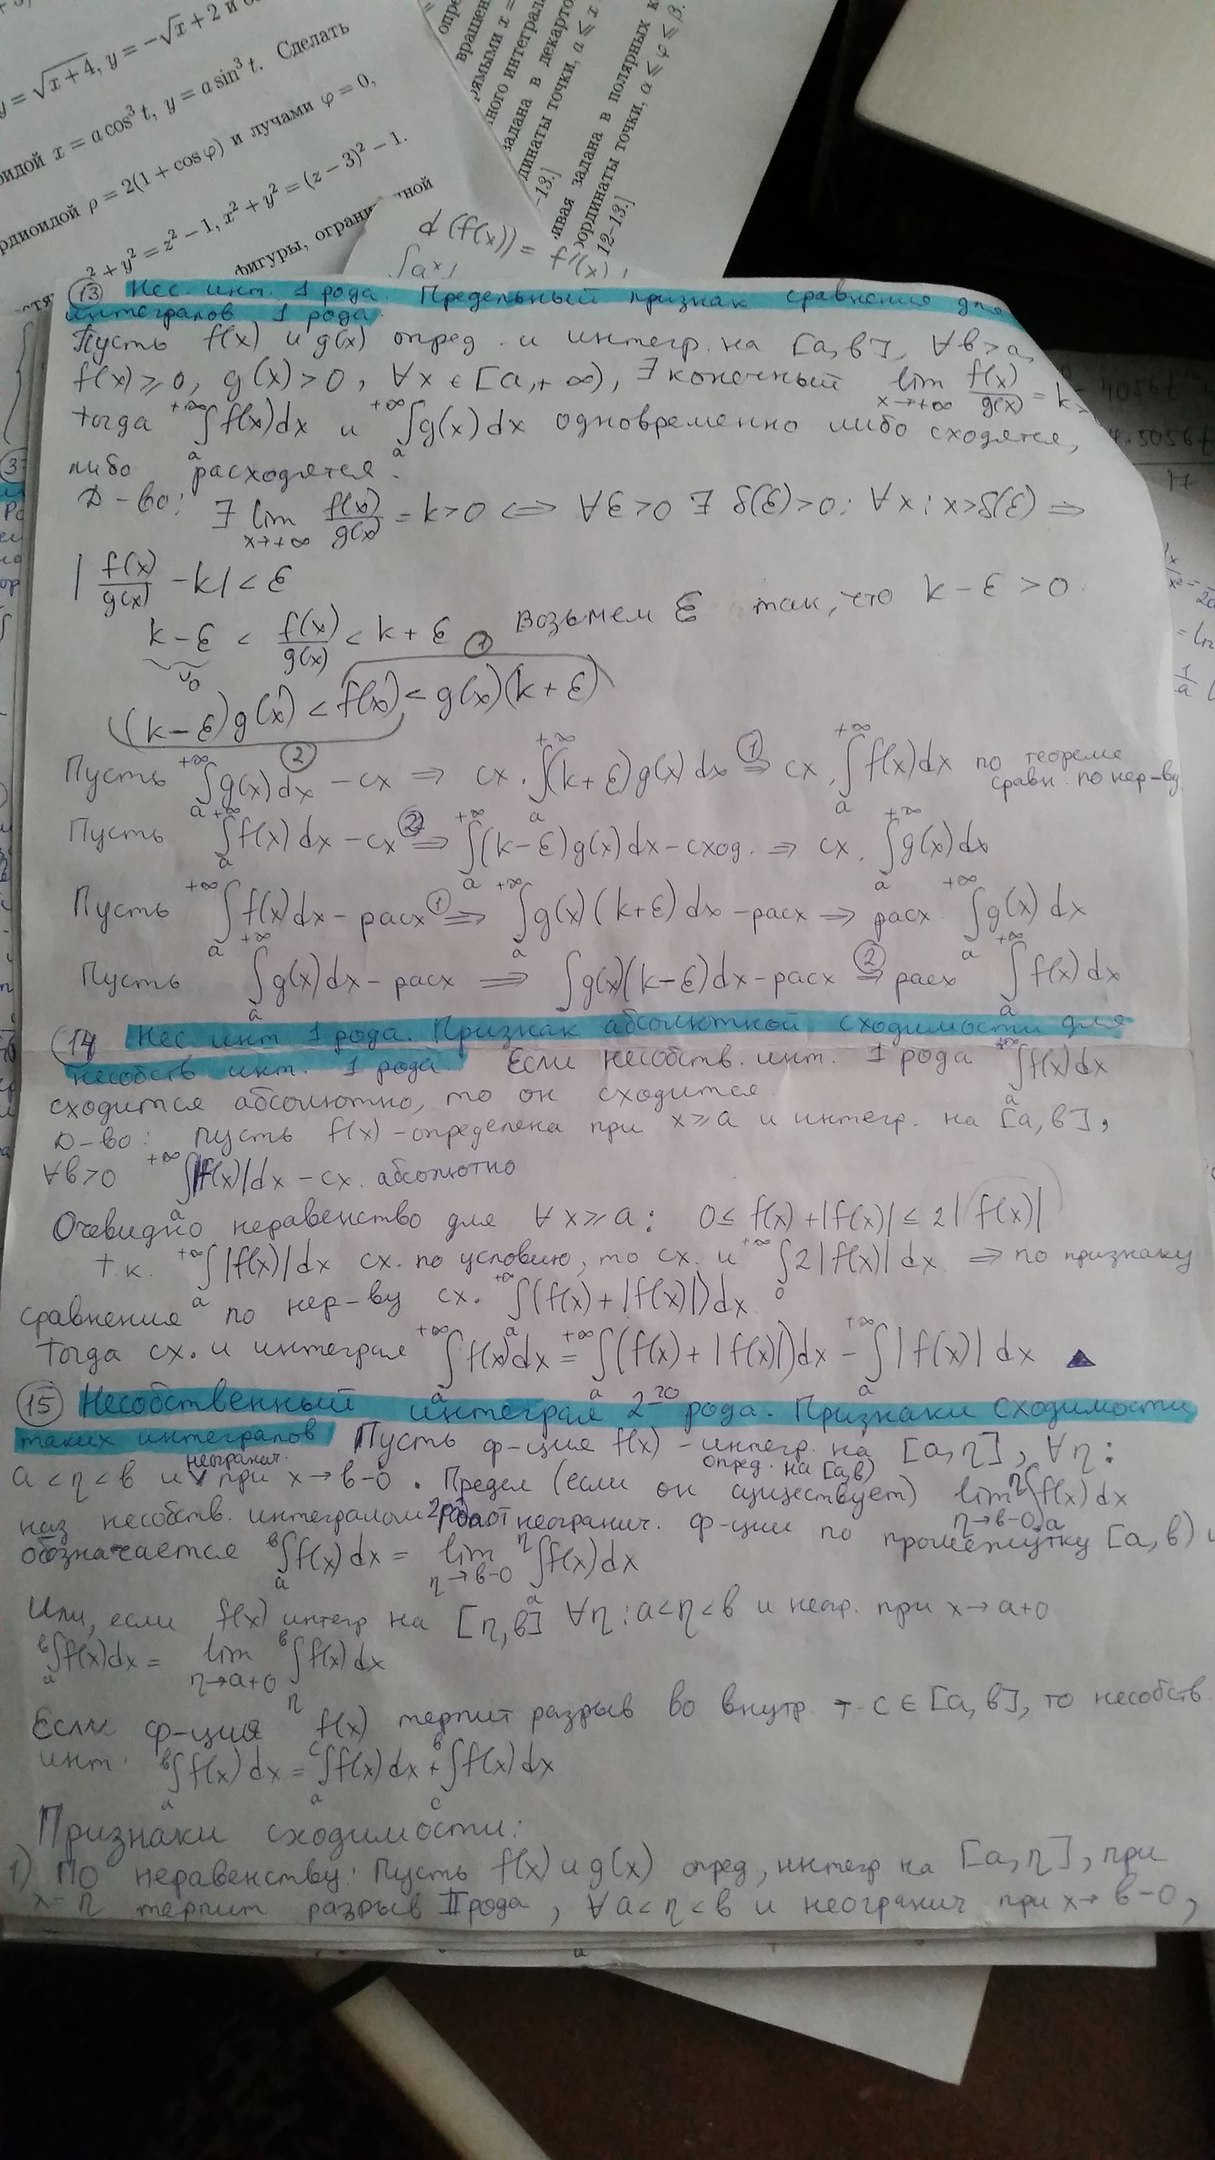 y = √x+4, y = −√x + 2 и
x = a cos³ t, y = a sin³ t. Сделать
ρ = 2(1 + cos φ) и лучами φ = 0,
² + y² = z² − 1, x² + y² = (z − 3)² − 1.
фигуры,
задана в декарто
точки, a ⩽ x
задана в полярных к
точки, α ⩽ φ ⩽ β.
12–13.]
d(f(x)) = f'(x)
(13) Нес. инт. 1 рода. Предельный признак сравнения для
интегралов 1 рода.
Пусть f(x) и g(x) опред. и интегр. на [a, b], ∀b>a,
f(x)⩾0, g(x)>0, ∀x∈[a,+∞), ∃ конечный lim x→+∞ f(x)/g(x) = k
Тогда ∫_a^{+∞} f(x)dx и ∫_a^{+∞} g(x)dx одновременно либо сходятся,
либо расходятся.
Д-во: ∃ lim x→+∞ f(x)/g(x) = k>0 ⇔ ∀ε>0 ∃ δ(ε)>0: ∀x: x>δ(ε) ⇒
|f(x)/g(x) − k| < ε
k−ε < f(x)/g(x) < k+ε Возьмем ε так, что k−ε > 0.
(k−ε)g(x) < f(x) < g(x)(k+ε) (1) (2)
Пусть ∫_a^{+∞} g(x)dx − сх ⇒ сх. ∫_a^{+∞} (k+ε)g(x)dx (1)⇒ сх. ∫_a^{+∞} f(x)dx по теореме
сравн. по нер-ву
Пусть ∫_a^{+∞} f(x)dx − сх (2)⇒ ∫_a^{+∞} (k−ε)g(x)dx − сход. ⇒ сх. ∫_a^{+∞} g(x)dx
Пусть ∫_a^{+∞} f(x)dx − расх (1)⇒ ∫_a^{+∞} g(x)(k+ε)dx − расх ⇒ расх ∫_a^{+∞} g(x)dx
Пусть ∫_a^{+∞} g(x)dx − расх ⇒ ∫g(x)(k−ε)dx − расх (2)⇒ расх ∫_a^{+∞} f(x)dx
(14) Нес. инт 1 рода. Признак абсолютной сходимости для
несобств инт. 1 рода. Если несобств. инт. 1 рода ∫_a^{+∞} f(x)dx
сходится абсолютно, то он сходится.
Д-во: пусть f(x) − определена при x⩾a и интегр. на [a, b],
∀b>0 ∫_a^{+∞} |f(x)|dx − сх. абсолютно
Очевидно неравенство для ∀x⩾a: 0≤ f(x)+|f(x)| ≤ 2|f(x)|
т.к. ∫_a^{+∞} |f(x)|dx сх. по условию, то сх. и ∫_0^{+∞} 2|f(x)|dx ⇒ по признаку
сравнения по нер-ву сх. ∫_a^{+∞} (f(x)+|f(x)|)dx
Тогда сх. и интеграл ∫_a^{+∞} f(x)dx = ∫_a^{+∞} (f(x)+|f(x)|)dx − ∫_a^{+∞} |f(x)|dx ▲
(15) Несобственный интеграл 2го рода. Признаки сходимости
таких интегралов Пусть ф-ция f(x) − интегр. на [a, η], ∀η:
a<η<b и неогранич. при x→b−0. опред. на [a,b) Предел (если он существует) lim η→b−0 ∫_a^η f(x)dx
наз несобств. интегралом 2 рода от неогранич. ф-ции по промежутку [a, b) и
обозначается ∫_a^b f(x)dx = lim η→b−0 ∫_a^η f(x)dx
Или, если f(x) интегр на [η, b] ∀η: a<η<b и неогр. при x→a+0
∫_a^b f(x)dx = lim η→a+0 ∫_η^b f(x)dx
Если ф-ция f(x) терпит разрыв во внутр. т. c∈[a, b], то несобств.
инт. ∫_a^b f(x)dx = ∫_a^c f(x)dx + ∫_c^b f(x)dx
Признаки сходимости:
1) По неравенству. Пусть f(x) и g(x) опред, интегр на [a, η], при
x=η терпит разрыв II рода, ∀a<η<b и неогранич при x→b−0,